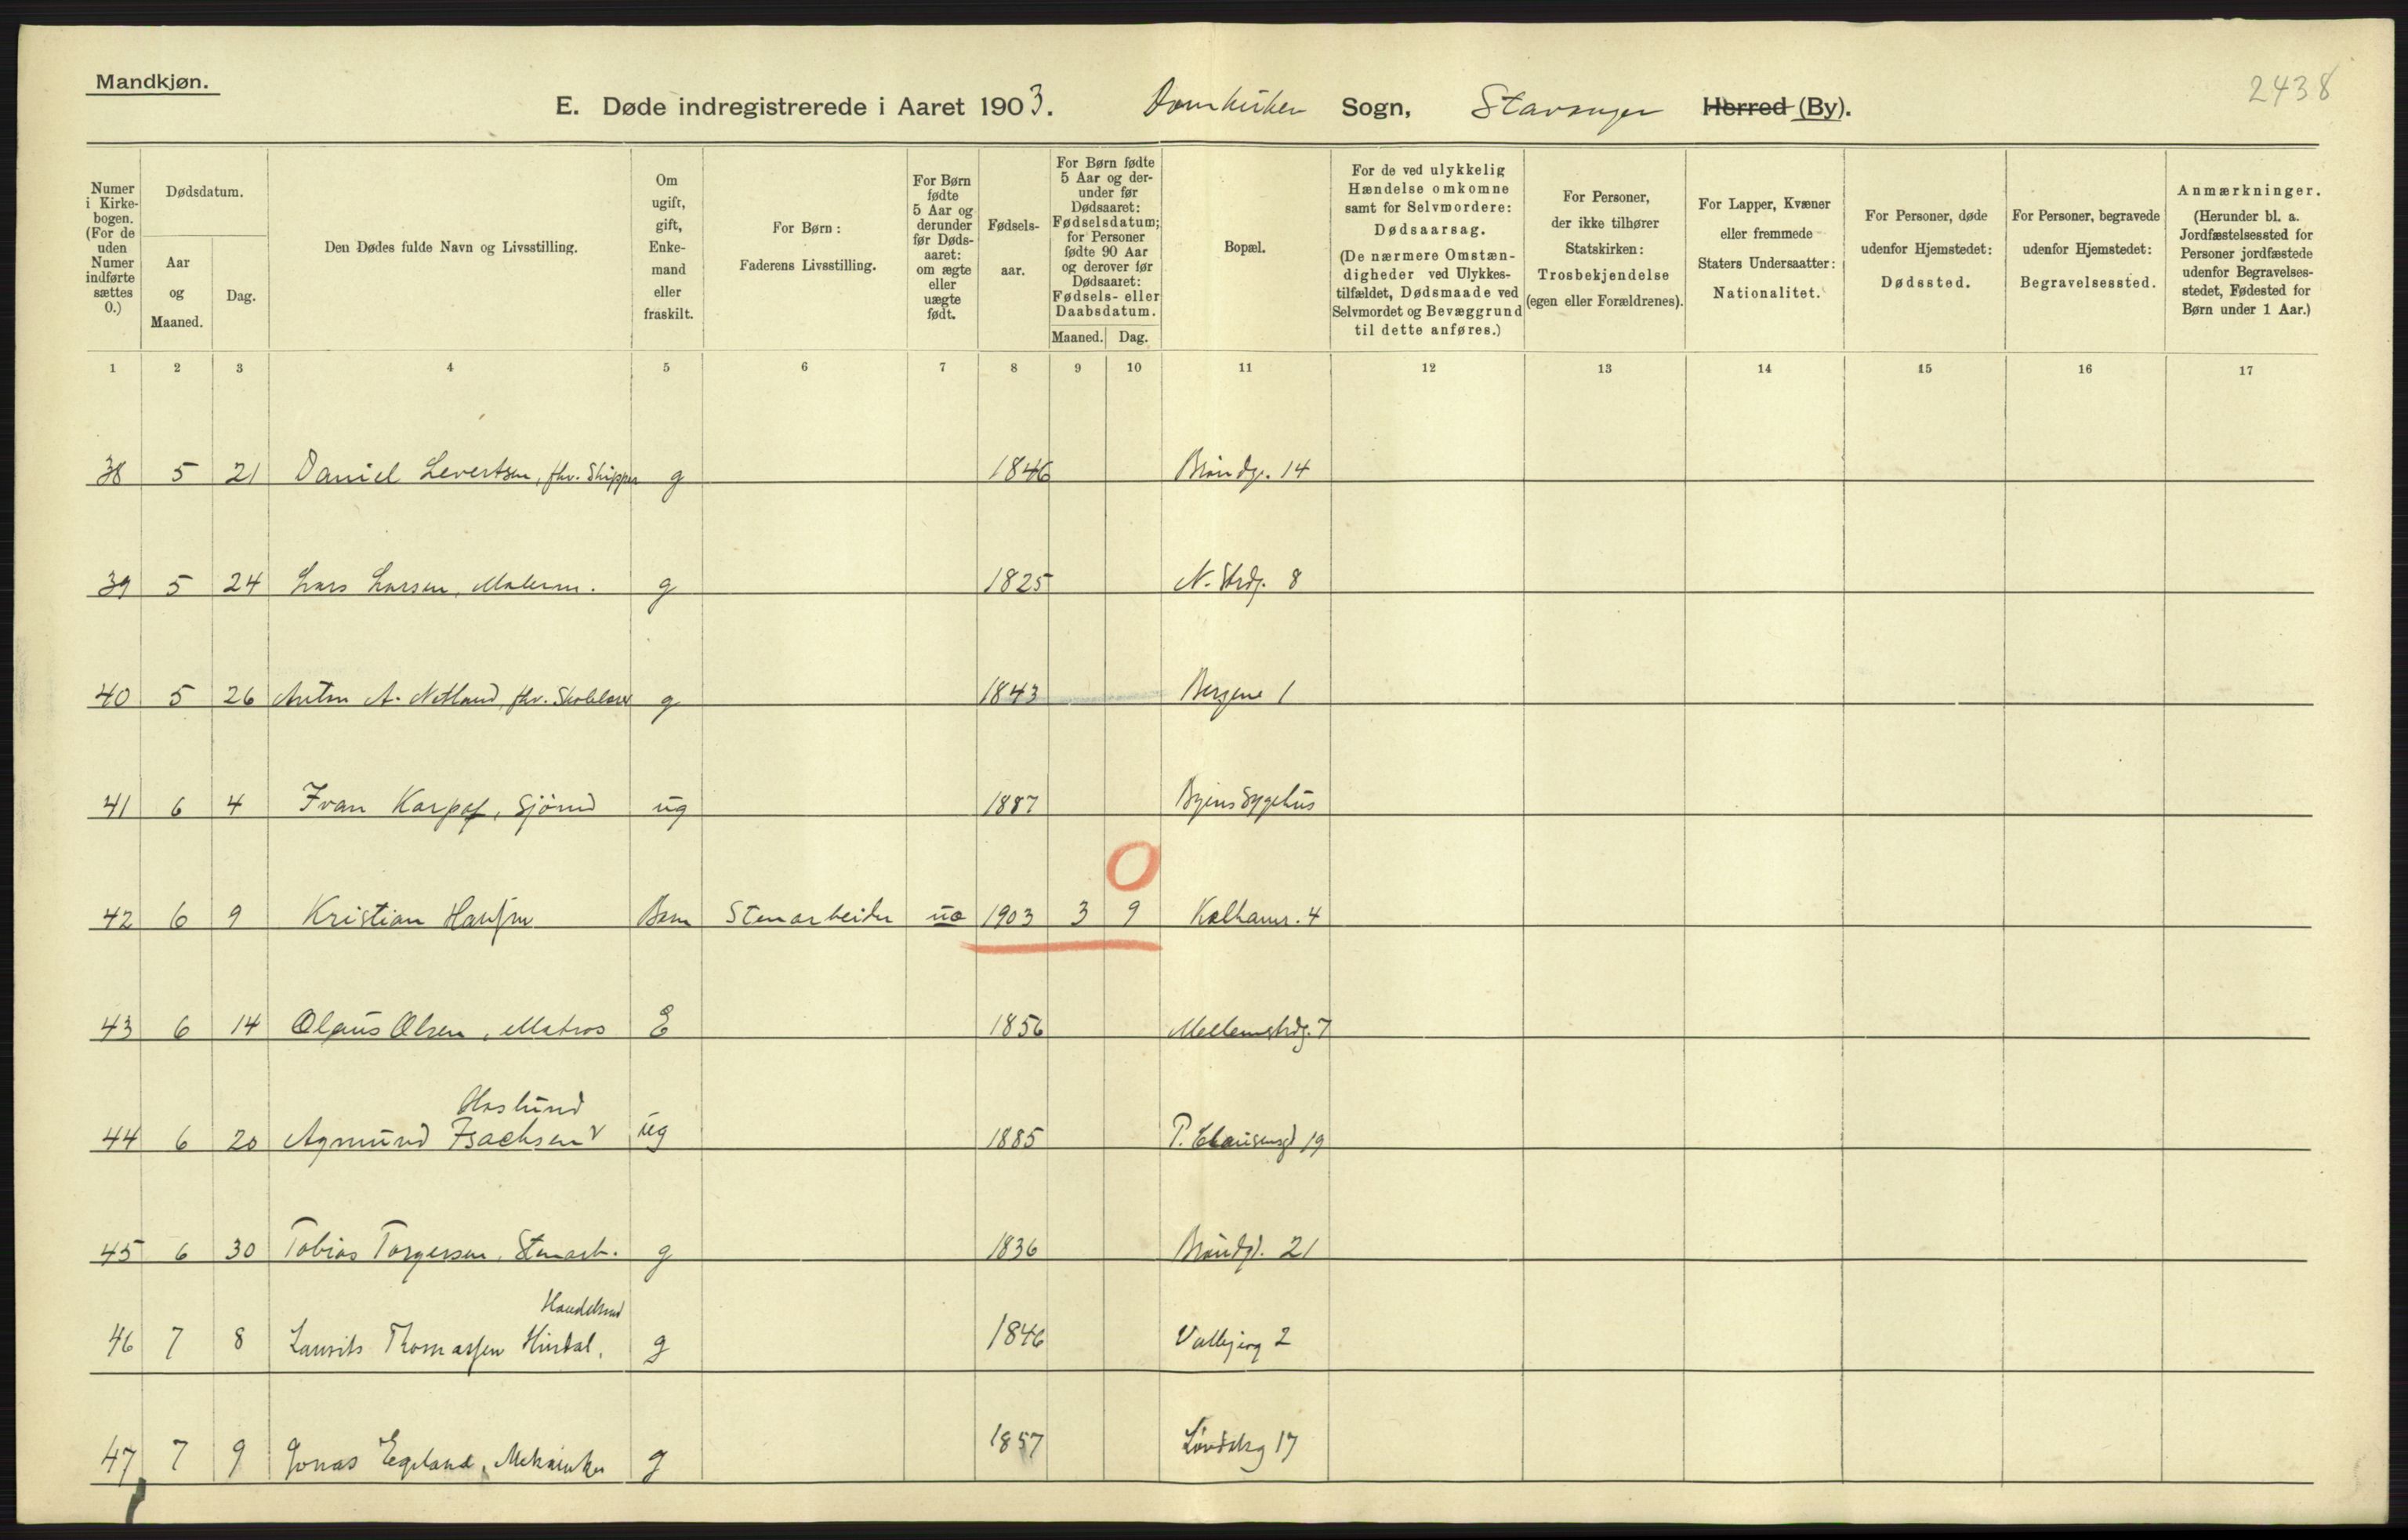 Mandkjøn.
2438
E. Døde indregistrerede i Aaret 1903. Domkirken Sogn, Stavanger Herred (By).
Numer i Kirke-bogen. (For de uden Numer indførte sættes 0.)
Dødsdatum.
Aar og Maaned.
Dag.
Den Dødes fulde Navn og Livsstilling.
Om ugift, gift, Enke-mand eller fraskilt.
For Børn: Faderens Livsstilling.
For Børn fødte 5 Aar og derunder før Døds-aaret: om ægte eller uægte født.
Fødsels-aar.
For Børn fødte 5 Aar og der-under før Dødsaaret: Fødselsdatum; for Personer fødte 90 Aar og derover før Dødsaaret: Fødsels- eller Daabsdatum.
Maaned. Dag.
Bopæl.
For de ved ulykkelig Hændelse omkomne samt for Selvmordere: Dødsaarsag. (De nærmere Omstæn-digheder ved Ulykkes-tilfældet, Dødsmaade ved Selvmordet og Bevæggrund til dette anføres.)
For Personer, der ikke tilhører Statskirken: Trosbekjendelse (egen eller Forældrenes).
For Lapper, Kvæner eller fremmede Staters Undersaatter: Nationalitet.
For Personer, døde udenfor Hjemstedet: Dødssted.
For Personer, begravede udenfor Hjemstedet: Begravelsessted.
Anmærkninger. (Herunder bl. a. Jordfæstelsessted for Personer jordfæstede udenfor Begravelses-stedet, Fødested for Børn under 1 Aar.)
1 2 3 4 5 6 7 8 9 10 11 12 13 14 15 16 17
38 5 21 Daniel Levertsen, fhv. Skipper g 1846 14
39 5 24 Lars Larsen, Malerm. g 1825 N. Strdg. 8
40 5 26 A. Netland, fhv. g 1843 Bergene 1
41 6 4 Ivan Karpof, Sjømd ug 1887 Byens Sygehus
0
42 6 9 Kristian Hansen Barn Stenarbeider uæ 1903 3 9 Kalhamr. 4
43 6 14 Olaus Olsen, Matros E 1856 Mellemstrdg. 7
Haslund
44 6 20 Agmund Isachsen v ug 1885 P. Clausensgd 19
45 6 30 Tobias Torgersen, Stenarb. g 1836 21
Handelsmd
46 7 8 Laurits Thomassen Hirdal, g 1846 Valbjerg 2
47 7 9 Jonas Egeland, Mekaniker g 1857 17